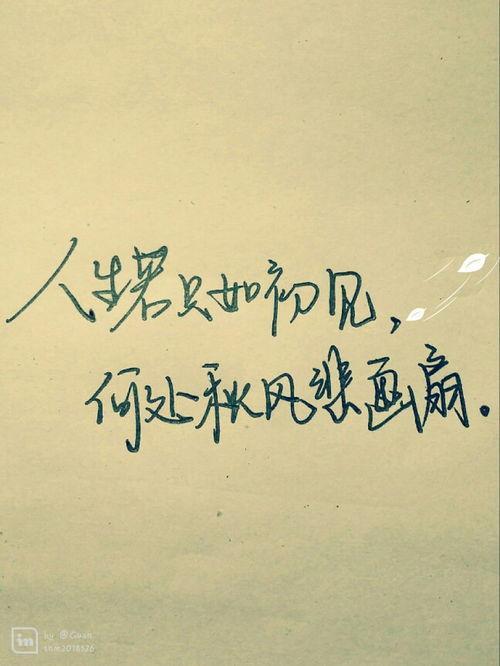 人生若只如初见，
何处秋风悲画扇。
in by @Guan